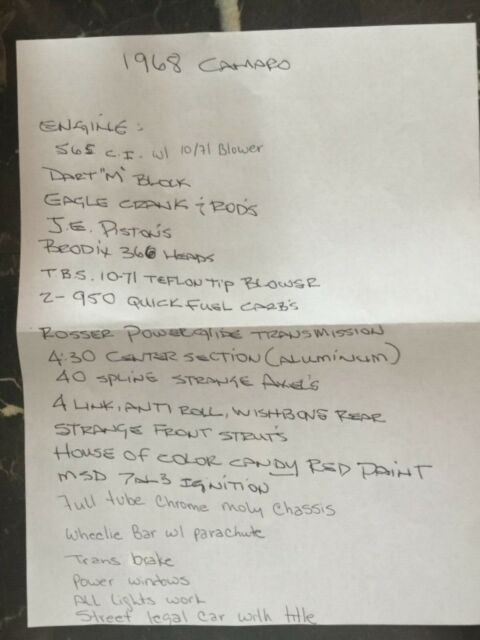 1968 CAMARO
ENGINE:
565 C.I. w/ 10/71 Blower
DART "M" BLOCK
EAGLE CRANK & ROD'S
J.E. PISTON'S
BRODIX 366 HEADS
T.B.S. 10-71 TEFLON TIP BLOWER
2-950 QUICK FUEL CARB'S
ROSSER POWERGLIDE TRANSMISSION
4:30 CENTER SECTION (ALUMINUM)
40 SPLINE STRANGE AXEL'S
4 LINK, ANTI ROLL, WISHBONE REAR
STRANGE FRONT STRUT'S
HOUSE OF COLOR CANDY RED PAINT
MSD 7AL3 IGNITION
Full tube Chrome moly Chassis
Wheelie Bar w/ parachute
Trans brake
Power windows
ALL lights work
Street legal Car with title